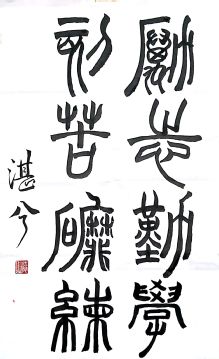 勵志勤學
刻苦礪練
湛兮